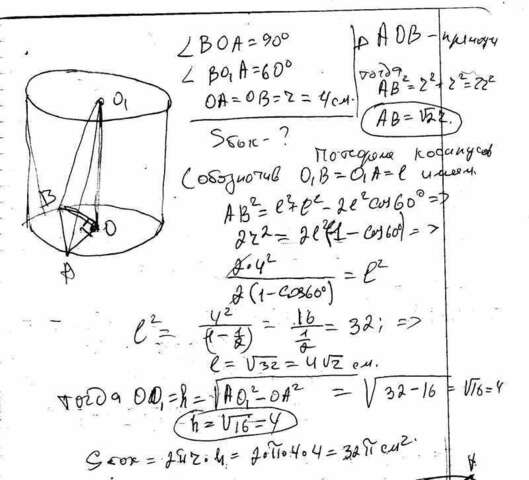 ∠BOA=90°
∠BO₁A=60°
OA=OB=r=4см.
Sбок-?
△ AOB - прямоуг
тогда
AB²=r²+r²=2r²
AB=√2r.
По теореме косинусов
(обозначив O₁B=O₁A=l имеем.
AB²=l²+l²-2l²cos60° =>
2r²=2l²(1-cos60°) =>
2·4²/2(1-cos60°) = l²
l² = 4²/(1-1/2) = 16/(1/2) = 32; =>
l=√32=4√2 см.
тогда OO₁=h=√AO₁²-OA² = √32-16 = √16=4
h=√16=4
Sбок=2πr·h=2·π·4·4=32π см².
O₁
B
O
A